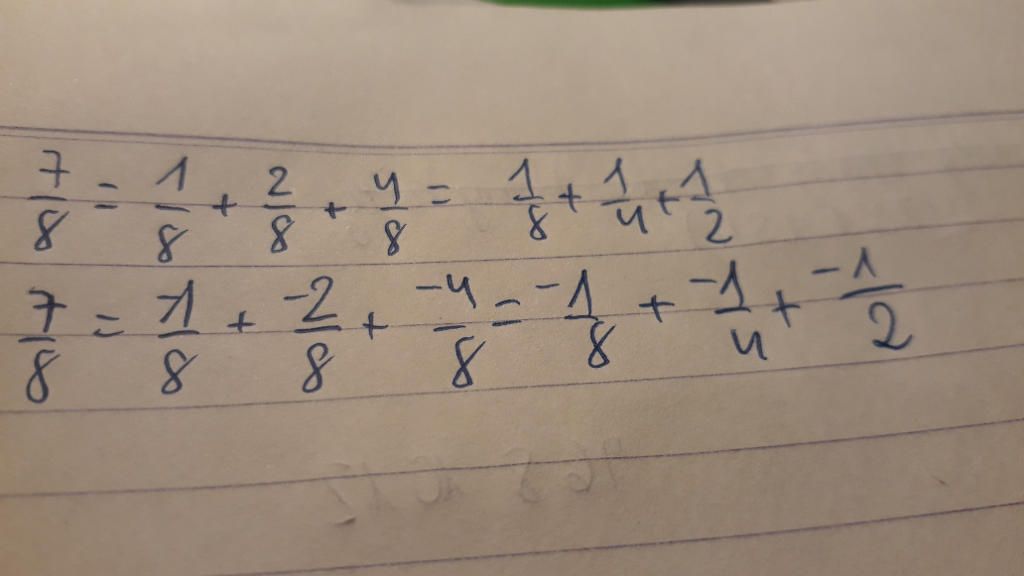 7/8 = 1/8 + 2/8 + 4/8 = 1/8 + 1/4 + 1/2
7/8 = -1/8 + -2/8 + -4/8 = -1/8 + -1/4 + -1/2